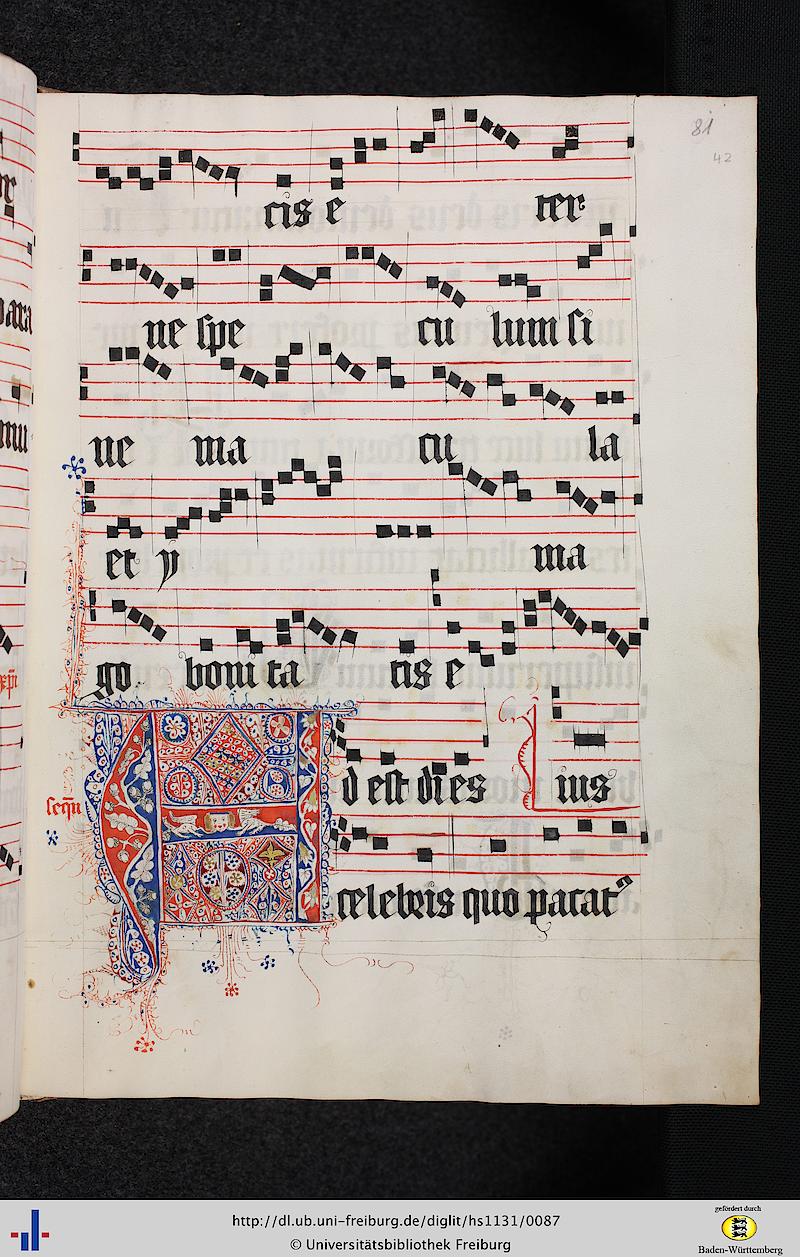 81
42
cis e ter
ne spe cu lum si
ne ma cu la
et y ma
go boni ta tis e ius
Ad est dies
sequ
celebris quo pacat⁹
http://dl.ub.uni-freiburg.de/diglit/hs1131/0087
© Universitätsbibliothek Freiburg
gefördert durch
Baden-Württemberg